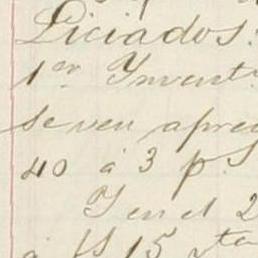 Liciados:
1er Invent
se ven aprec
40 á 3 p.s
Y en el 2
á $15